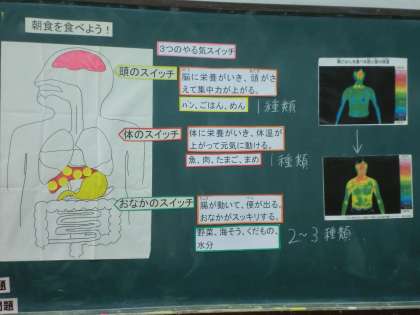 朝食を食べよう！
3つのやる気スイッチ
頭のスイッチ
脳に栄養がいき、頭がさ
えて集中力が上がる。
パン、ごはん、めん
1種類
体のスイッチ
体に栄養がいき、体温が
上がって元気に動ける。
魚、肉、たまご、まめ
1種類
おなかのスイッチ
腸が動いて、便が出る。
おなかがスッキリする。
野菜、海そう、くだもの、
水分
2〜3種類
題
問題